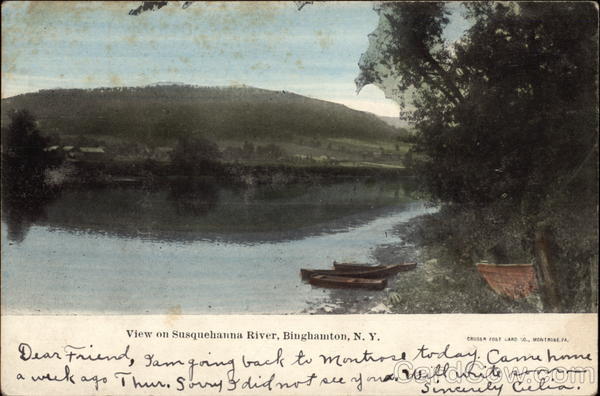 View on Susquehanna River, Binghamton, N. Y.
CRUSER POST CARD CO., MONTROSE, PA.
Dear Friend, I am going back to Montrose today. Came home
a week ago Thur. Sorry I did not see you. Will write soon
Sincerely Celia.
CardCow.com